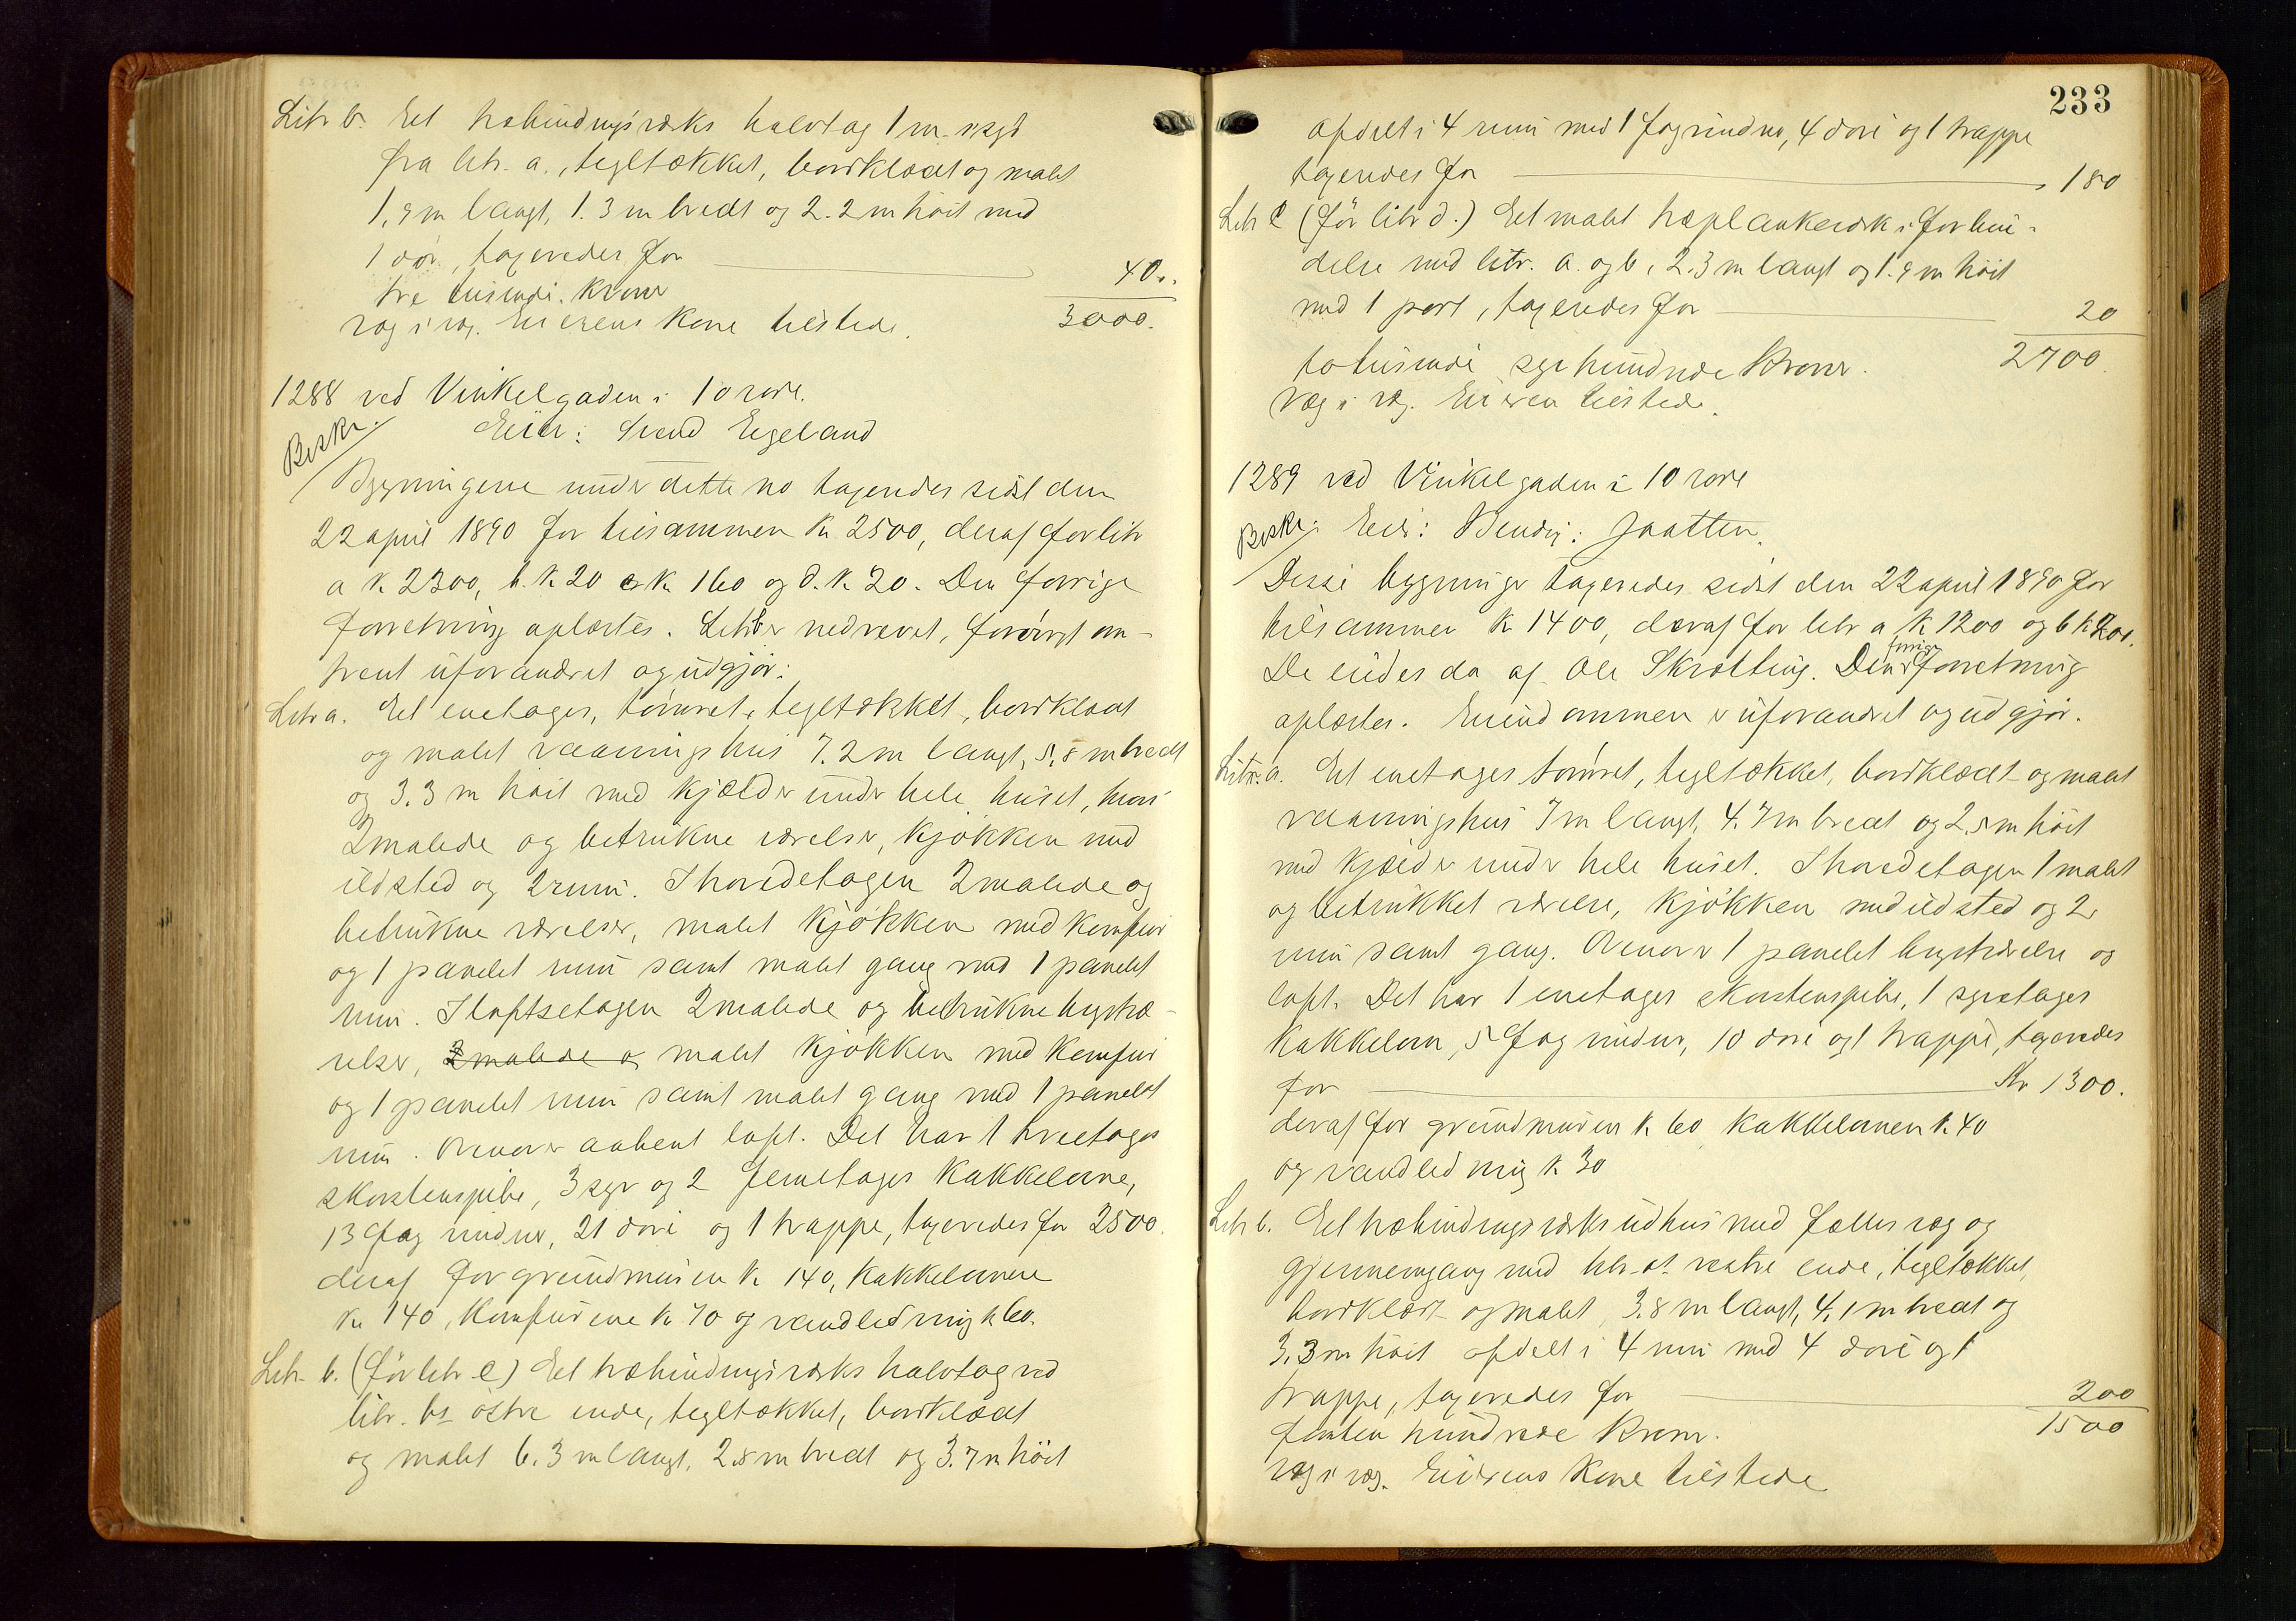 Litr b. Eet træbindingsværks halvtag 1 m.
fra litr. a., tegltækket, bordklædt og malet
1,9 m langt, 1.3 m bredt og 2.2 m høit med
1 dør, taxeredes for 40..
tre tusinde. Kroner
væg i væg. Eierens Kone tilstede. 3000.
1288 ved Vinkelgaden i 10 rode.
Beskr. Eier: Svend Eegeland
Bygningerne under dette no taxeredes sidst den
22 april 1890 for tilsammen Kr 2500, deraf for litr
a Kr 2300, b. Kr 20 c Kr 160 og d. Kr 20. Den forrige
forretning oplæstes. Litr b er nedrevet, forøvrigt om-
trent uforandret og udgjør:
Litr a. Eet enetages, tømret, tegltækket, bordklædt
og malet vaaningshus 7.2 m langt, 5,8 m bredt
og 3.3 m høit med kjælder under hele huset, hvori
2 malede og betrukne værelser, kjøkken med
ildsted og 2 rum. I hovedetagen 2 malede og
betrukne værelser, malet kjøkken med komfur
og 1 panelet rum samt malet gang med 1 panelet
rum. I loftsetagen 2 malede og betrukne kvistvæ-
relser, 2 malede o malet kjøkken med komfur
og 1 panelet rum samt malet gang med 1 panelet
rum. Ovenover aabent loft. Det har 1 treetages
skorstenspibe, 3 syv og 2 femetages kakkelovne,
13 fag vinduer, 21 døre og 1 trappe, taxeredes for 2500.
deraf for grundmuren Kr 140, kakkelovnene
Kr 140, komfurene Kr 70 og vandledning Kr 60.
Litr. b. (før litr c) Eet træbindingsværks halvtag ved
litr. bs østre ende, tegltækket, bordklædt
og malet 6.3 m langt, 2.8 m bredt og 3.7 m høit
233
afdelt i 4 rum med 1 fag vinduer, 4 døre og 1 trappe
taxeredes for 180
Litr c (før litr d.) Eet malet træplankeværk i forbin-
delse med litr. a. og b, 2.3 m langt og 1.9 m høit
med 1 port, taxeredes for 20
totusinde syv hundrede Kroner. 2700.
Væg i væg. Eieren tilstede.
1289 ved Vinkelgaden i 10 rode
Beskr. Eier: Bendix: Jaatten.
Disse bygninger taxeredes sidst den 22 april 1890 for
tilsammen Kr 1400, deraf for litr a Kr 1200 og b Kr 200.
De eiedes da af Ole Skrøtting. Den forrige forretning
oplæstes. Eiendommen er uforandret og udgjør.
Litr. a. Eet enetages tømret, tegltækket, bordklædt og malet
vaaningshus 7 m langt, 4.7 m bredt og 2,5 m høit
med kjælder under hele huset. I hovedetagen 1 malet
og betrukket værelse, kjøkken med ildsted og 2
rum samt gang. Ovenover 1 panelet kvistværelse og
loft. Det har 1 enetages skorstenspibe, 1 syvetages
kakkelovn, 5 fag vinduer, 10 døre og 1 trappe, taxeredes
for Kr 1300.
deraf for grundmuren Kr 60 kakkelovnen Kr 40
og vandledning Kr 30
Litr b. Eet træbindingsværks udhus med fælles væg og
gjennemgang med litr. as vestre ende, tegltækket,
bordklædt og malet, 3.8 m langt, 4,1 m bredt og
3.3 m høit afdelt i 4 rum med 4 døre og 1
trappe, taxeredes for 200
femten hundrede Kroner. 1500
væg i væg. Eierens Kone tilstede